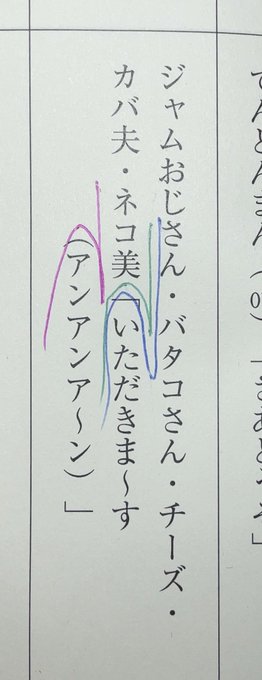 てんどんまん
ジャムおじさん・バタコさん・チーズ・
カバ夫・ネコ美「いただきま～す
(アンアンア～ン)」